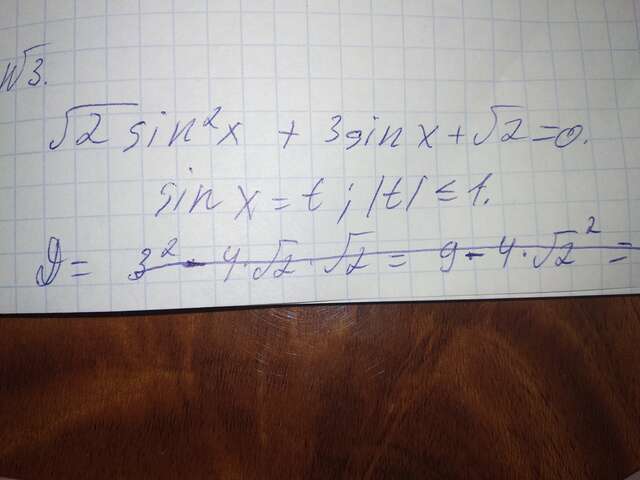 №3.
√2 sin²x + 3sin x + √2 = 0.
sin x = t ; |t| ≤ 1.
D = 3² - 4·√2·√2 = 9 - 4·√2² =